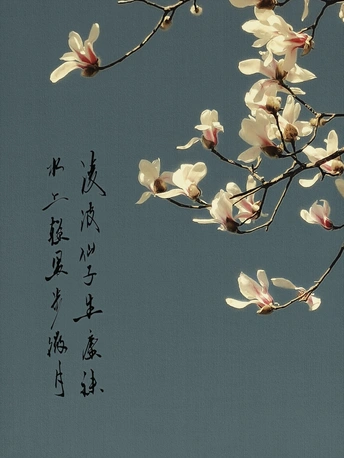 凌波仙子生尘袜
水上轻盈步微月